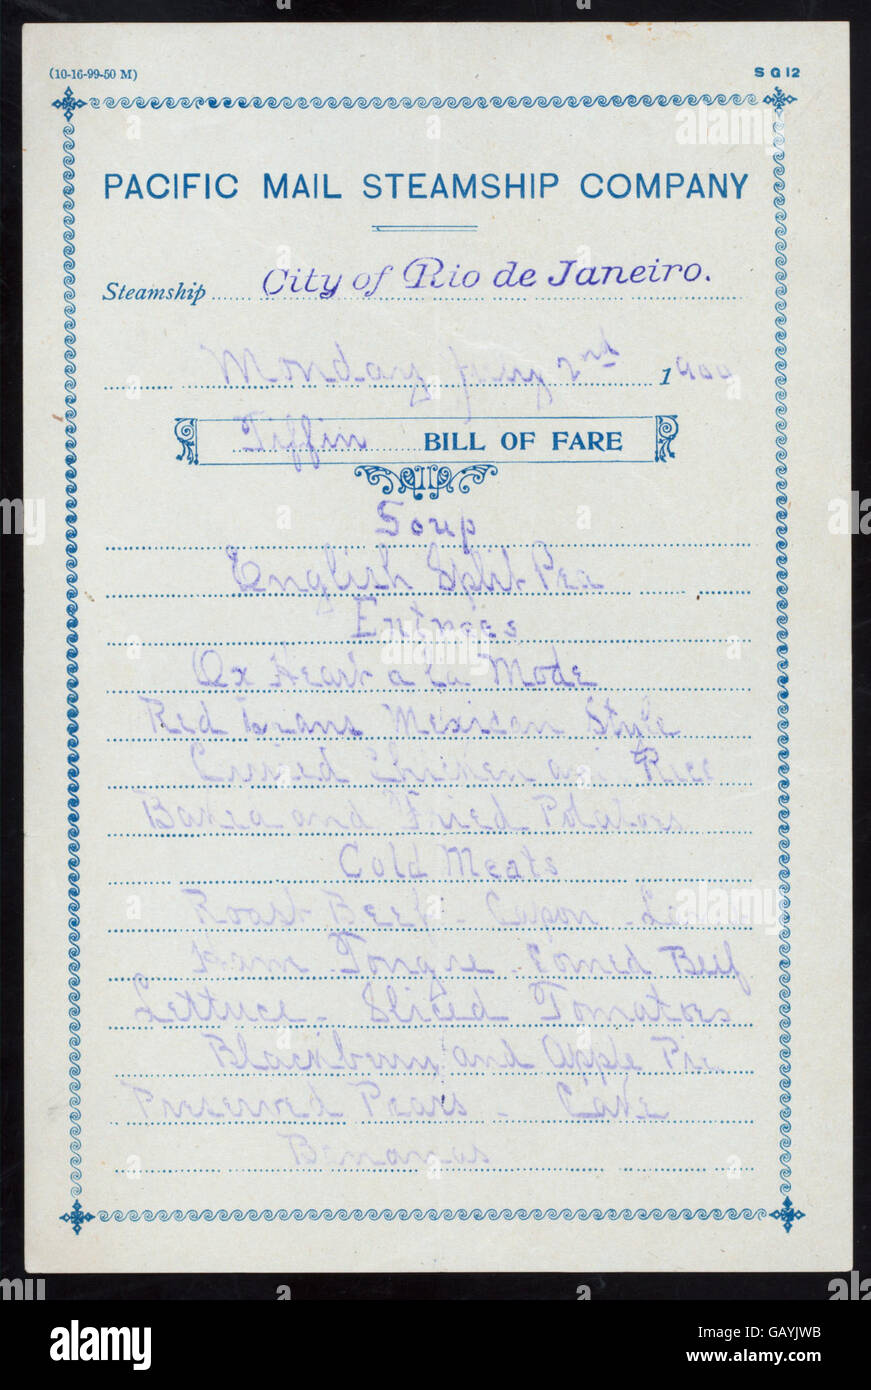 (10-16-99-50 M)
S G 12
PACIFIC MAIL STEAMSHIP COMPANY
Steamship City of Rio de Janeiro.
Monday July 2nd 1900
Tiffin BILL OF FARE
Soup
English Split Pea
Entrees
Ox Heart a la Mode
Red Beans Mexican Style
Curried Chicken and Rice
Baked and Fried Potatoes
Cold Meats
Roast Beef - Capon - Lamb
Ham - Tongue - Corned Beef
Lettuce - Sliced Tomatoes
Blackberry and Apple Pie
Preserved Pears - Cake
Bananas
alamy
Image ID: GAYJWB
www.alamy.com